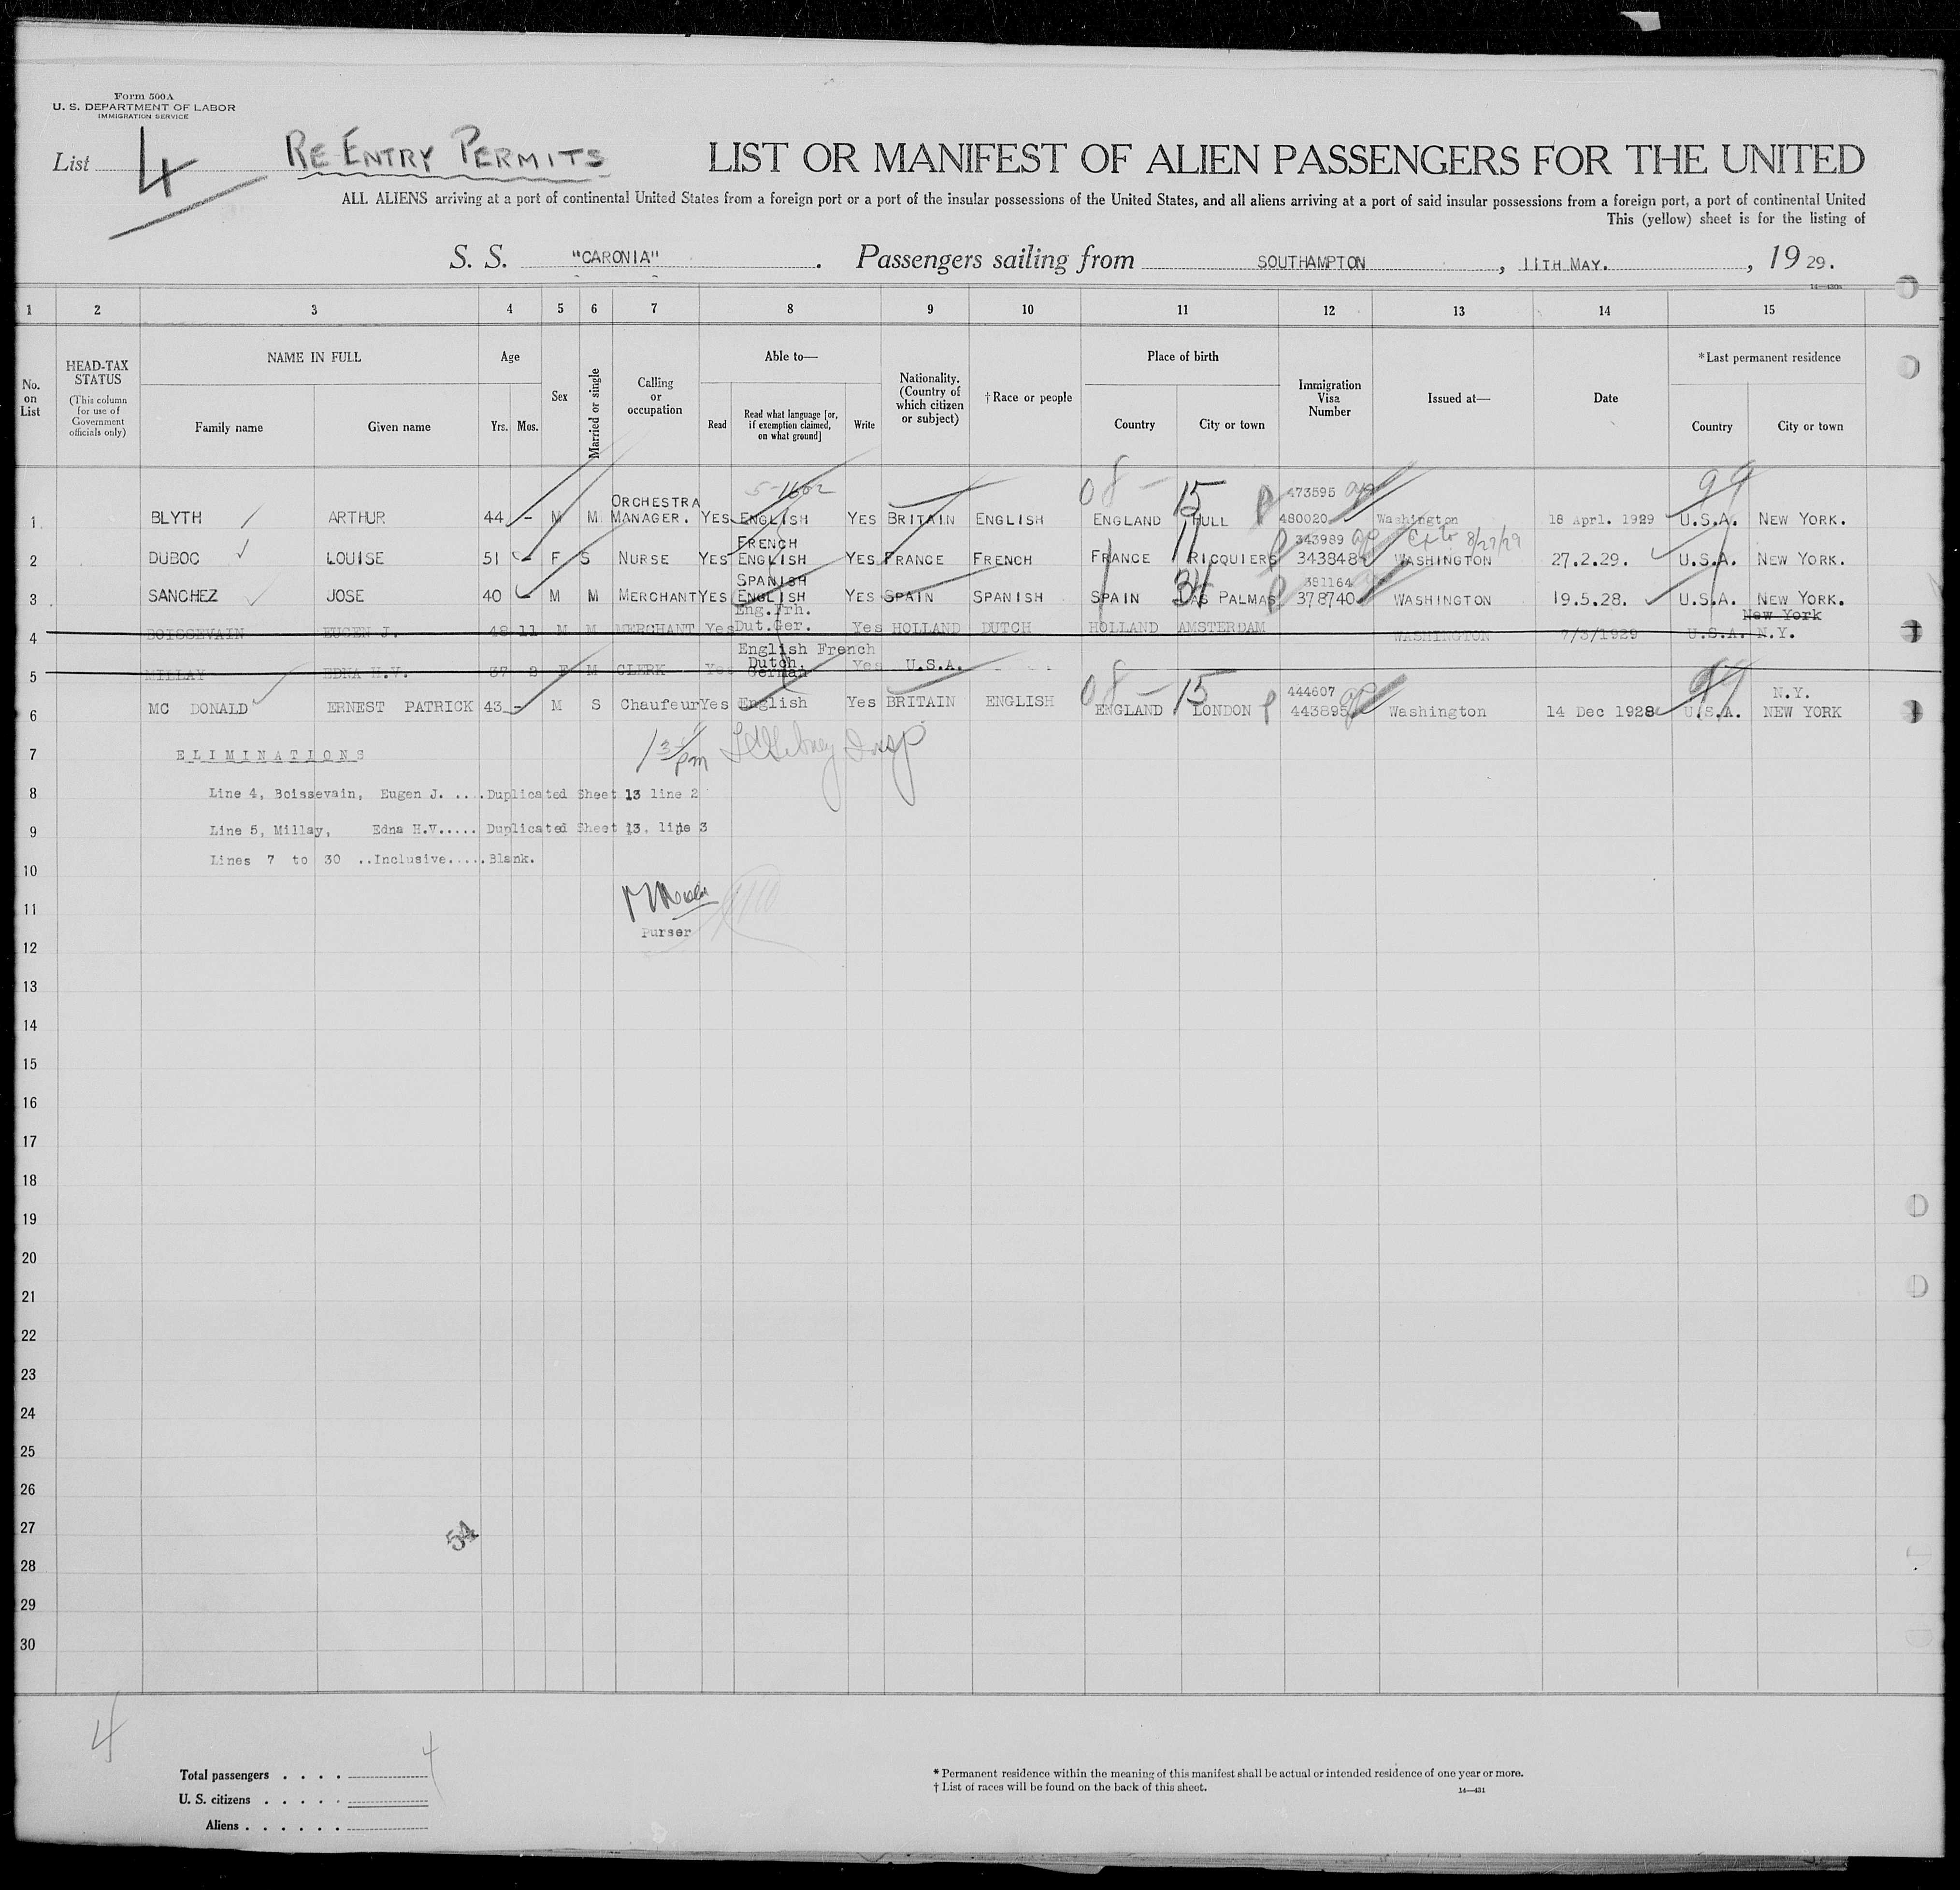 Form 500A
U. S. DEPARTMENT OF LABOR
IMMIGRATION SERVICE
List 4 RE-ENTRY PERMITS
LIST OR MANIFEST OF ALIEN PASSENGERS FOR THE UNITED
ALL ALIENS arriving at a port of continental United States from a foreign port or a port of the insular possessions of the United States, and all aliens arriving at a port of said insular possessions from a foreign port, a port of continental United
This (yellow) sheet is for the listing of
S. S. "CARONIA". Passengers sailing from SOUTHAMPTON, 11TH MAY., 19 29.
1 2 3 4 5 6 7 8 9 10 11 12 13 14 15
No. on List
HEAD-TAX STATUS
(This column for use of Government officials only)
NAME IN FULL
Family name Given name
Age
Yrs. Mos.
Sex
Married or single
Calling or occupation
Able to—
Read
Read what language [or, if exemption claimed, on what ground]
Write
Nationality. (Country of which citizen or subject)
†Race or people
Place of birth
Country City or town
Immigration Visa Number
Issued at—
Date
*Last permanent residence
Country City or town
5-1602 08 - 15 473595 99
1 BLYTH ARTHUR 44 - M M ORCHESTRA MANAGER. YES ENGLISH YES BRITAIN ENGLISH ENGLAND HULL 480020 Washington 18 Aprl. 1929 U.S.A. NEW YORK.
FRENCH 11 343989 8/27/29
2 DUBOC LOUISE 51 - F S NURSE YES ENGLISH YES FRANCE FRENCH FRANCE RICQUIERS 343848 WASHINGTON 27.2.29. U.S.A. NEW YORK.
SPANISH 34 381164
3 SANCHEZ JOSE 40 M M MERCHANT YES ENGLISH YES SPAIN SPANISH SPAIN LAS PALMAS 378740 WASHINGTON 19.5.28. U.S.A. NEW YORK.
Eng.Frh. New York
4 BOISSEVAIN EUGEN J. 48 11 M M MERCHANT Yes Dut.Ger. Yes HOLLAND DUTCH HOLLAND AMSTERDAM WASHINGTON 7/3/1929 U.S.A. N.Y.
English French
5 MILLAY EDNA H.V. 37 2 F M CLERK Yes Dutch, German Yes U.S.A.
08 - 15 444607 99 N.Y.
6 MC DONALD ERNEST PATRICK 43 - M S Chaufeur Yes English Yes BRITAIN ENGLISH ENGLAND LONDON 443895 Washington 14 Dec 1928 U.S.A. NEW YORK
7 ELIMINATIONS
8 Line 4, Boissevain, Eugen J. ....Duplicated Sheet 13 line 2
9 Line 5, Millay, Edna H.V..... Duplicated Sheet 13, line 3
Lines 7 to 30 ..Inclusive.....Blank.
10
11
Purser
12
13
14
15
16
17
18
19
20
21
22
23
24
25
26
27
54
28
29
30
4
Total passengers . . . . 4
U. S. citizens . . . . .
Aliens . . . . . .
* Permanent residence within the meaning of this manifest shall be actual or intended residence of one year or more.
† List of races will be found on the back of this sheet.
14—431